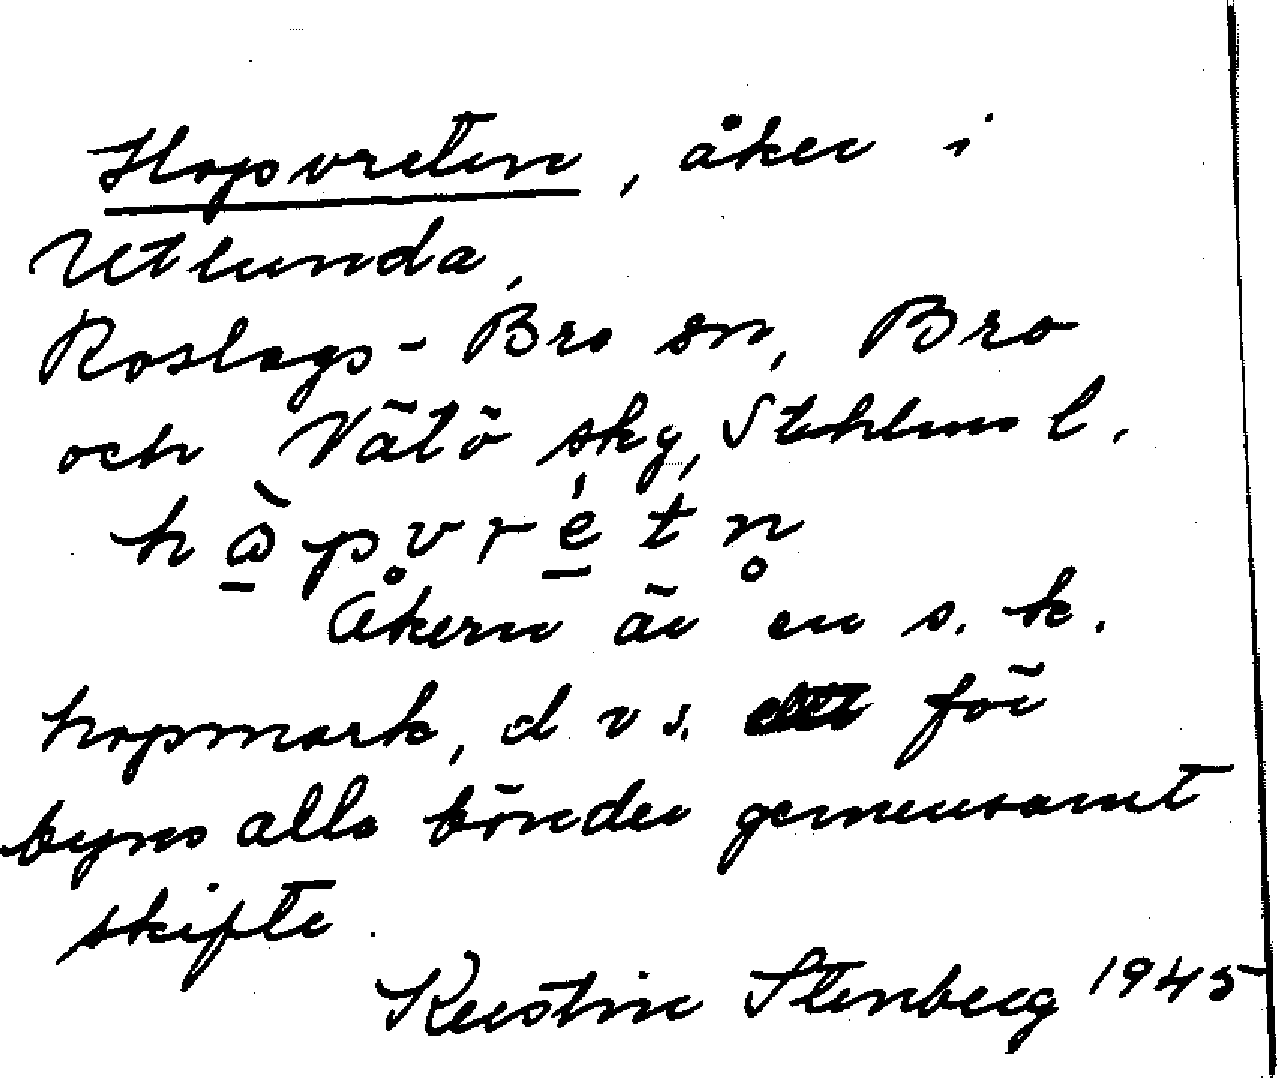 Hopvreten, åker i
Utlunda,
Roslags-Bro sn, Bro
och Vätö skg, Sthlms l.
Åkern är en s.k.
hopmark, d v s. för
byns alla bönder gemensamt
skifte.
Kerstin Stenberg 1945